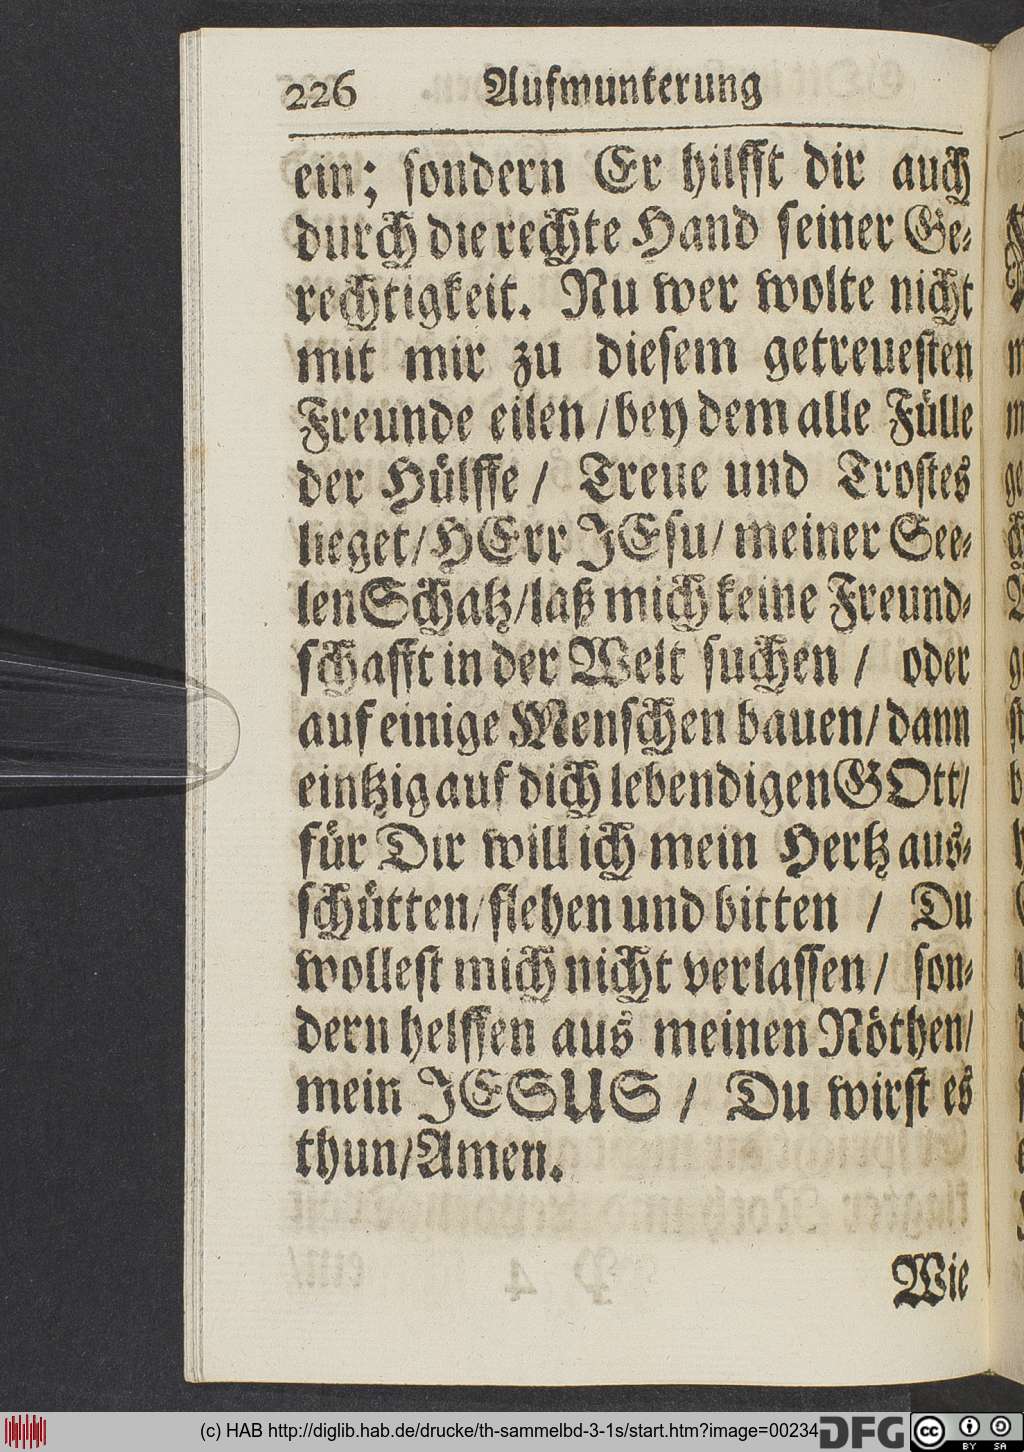 226 Aufmunterung
ein; sondern Er hilfft dir auch
durch die rechte Hand seiner Ge-
rechtigkeit. Nu wer wolte nicht
mit mir zu diesem getreuesten
Freunde eilen / bey dem alle Fülle
der Hülffe / Treue und Trostes
lieget / HErr JEsu / meiner See-
len Schatz / laß mich keine Freund-
schafft in der Welt suchen / oder
auf einige Menschen bauen / dann
eintzig auf dich lebendigen GOtt /
für Dir will ich mein Hertz aus-
schütten / flehen und bitten / Du
wollest mich nicht verlassen / son-
dern helffen aus meinen Nöthen /
mein JESUS / Du wirst es
thun / Amen.
Wie
(c) HAB http://diglib.hab.de/drucke/th-sammelbd-3-1s/start.htm?image=00234
DFG
cc BY SA